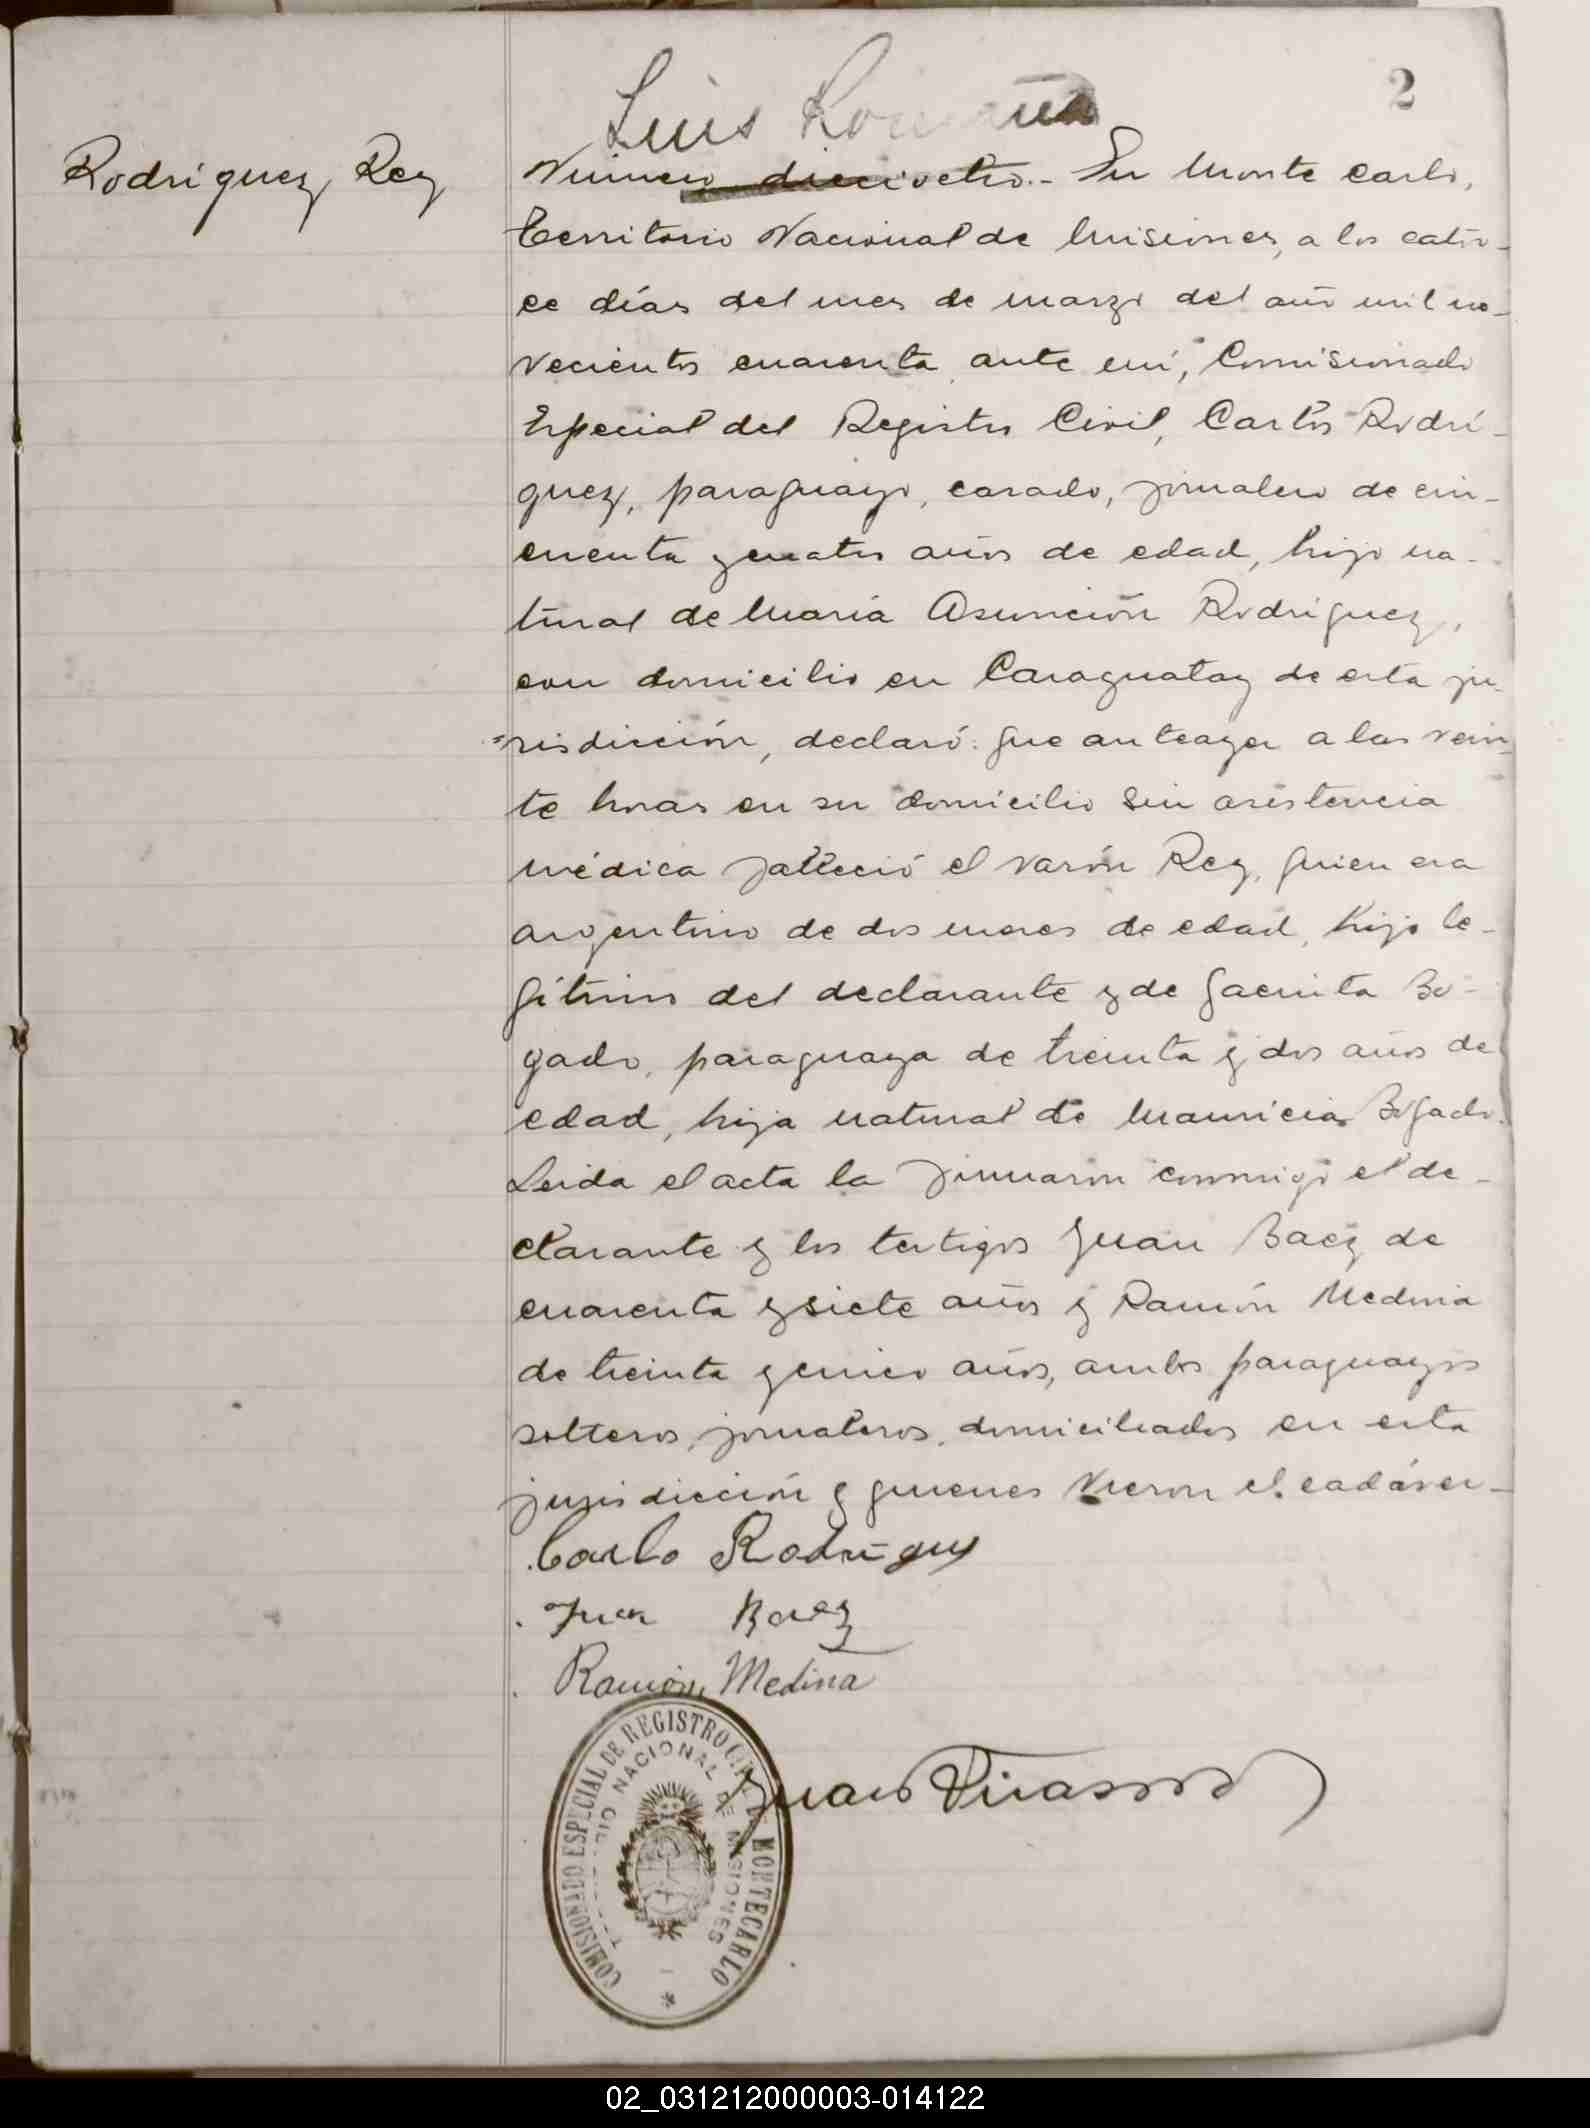 Luis
2
Rodríguez, Rey
Número dieciocho.- En Monte Carlo,
Territorio Nacional de Misiones, a los cator-
ce días del mes de marzo del año mil no-
vecientos cuarenta, ante mí, Comisionado
Especial del Registro Civil, Carlos Rodrí-
guez, paraguayo, casado, jornalero de cin-
cuenta y cuatro años de edad, hijo na-
tural de María Asunción Rodríguez,
con domicilio en Caraguatay de esta ju-
risdicción, declaró: que anteayer a las vein-
te horas en su domicilio sin asistencia
médica falleció el varón Rey, quien era
argentino de dos meses de edad, hijo le-
gítimo del declarante y de Jacinta Bo-
gado, paraguaya de treinta y dos años de
edad, hija natural de Mauricia Bogado.
Leida el acta la firmaron conmigo el de-
clarante y los testigos Juan Baez de
cuarenta y siete años y Ramón Medina
de treinta y cinco años, ambos paraguayos
solteros, jornaleros, domiciliados en esta
jurisdicción y quienes vieron el cadáver-
Carlo Rodriguez
Juan Baez
Ramón Medina
COMISIONADO ESPECIAL DE REGISTRO CIVIL MONTECARLO
TERRITORIO NACIONAL DE MISIONES
02_031212000003-014122